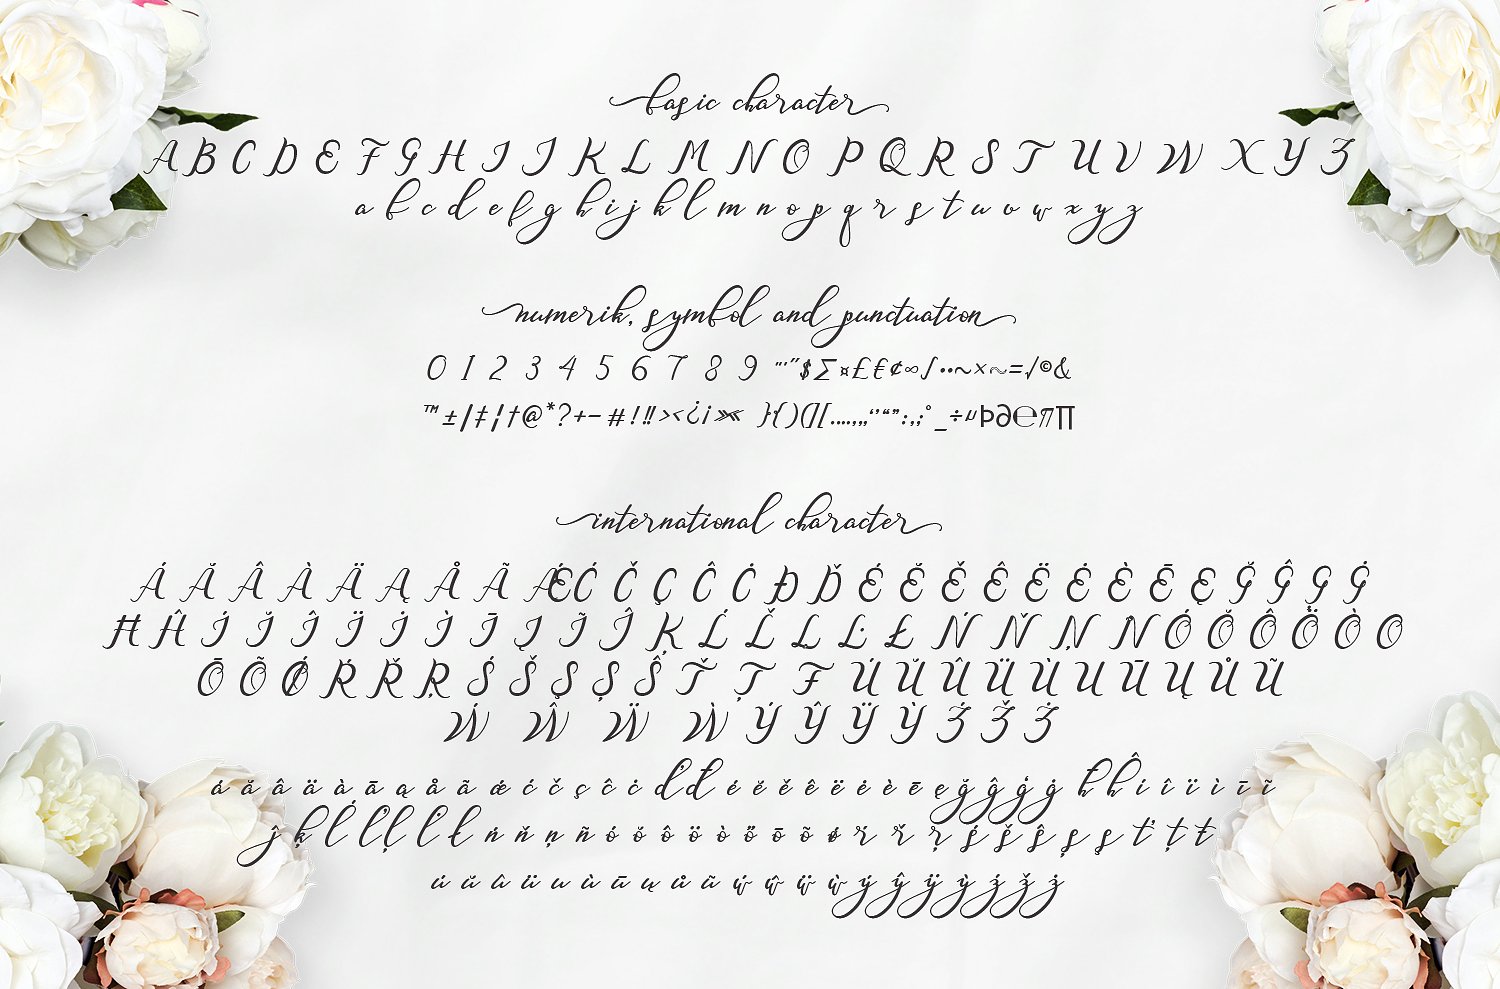 basic character
A B C D E F G H I J K L M N O P Q R S T U V W X Y Z
a b c d e f g h i j k l m n o p q r s t u v w x y z
numerik, symbol and punctuation
0 1 2 3 4 5 6 7 8 9 "'"$∑¤£€¢∞∫••~×~=√©&
™±|‡¦†@*?+−#!‼><¿¡»« }{)(][....,,,‘’“”:,;°_÷µÞ∂℮π∏
international character
Á Ă Â À Ä Ą Å Ã Æ Ć Č Ç Ĉ Ċ Đ Ď É Ĕ Ě Ê Ë Ė È Ē Ę Ğ Ĝ Ģ Ġ
Ħ Ĥ Í Ĭ Î Ï İ Ì Ī Į Ĩ Ĵ Ķ Ĺ Ľ Ļ Ŀ Ł Ń Ň Ņ Ó Ŏ Ô Ö Ò
Ō Õ Ø Ŕ Ř Ŗ Ś Š Ş Ș Ŝ Ť Ț Ŧ Ú Ŭ Û Ü Ù Ū Ų Ů Ũ
Ẃ Ŵ Ẅ Ẁ Ý Ŷ Ÿ Ỳ Ź Ž Ż
á ă â ä à ā ą å ã ǽ ć č ç ĉ ċ ď đ é ĕ ě ê ë ė è ē ę ğ ĝ ģ ġ ħ ĥ í î ï ì ī ĩ
ĵ ķ ĺ ľ ļ ŀ ł ń ň ņ ñ ó ŏ ô ö ò ő ō õ ø ŕ ř ŗ ś š ŝ ş ș ť ț ŧ
ú ŭ û ü ù ū ų ů ũ ẃ ŵ ẅ ẁ ý ŷ ÿ ỳ ź ž ż